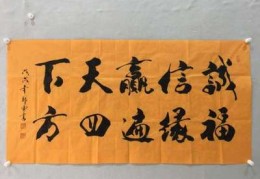 誠信贏天下
福緣遍四方
戊戌